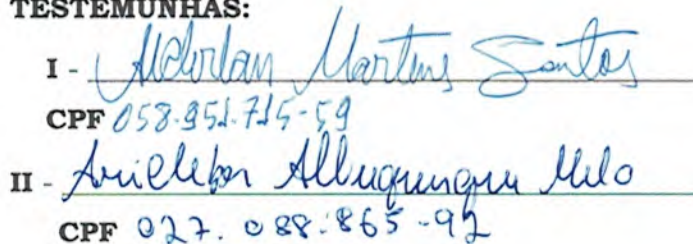 TESTEMUNHAS:
I - Martins Santos
CPF 058.951.715-59
II - Albuquerque Melo
CPF 027.088.865-92